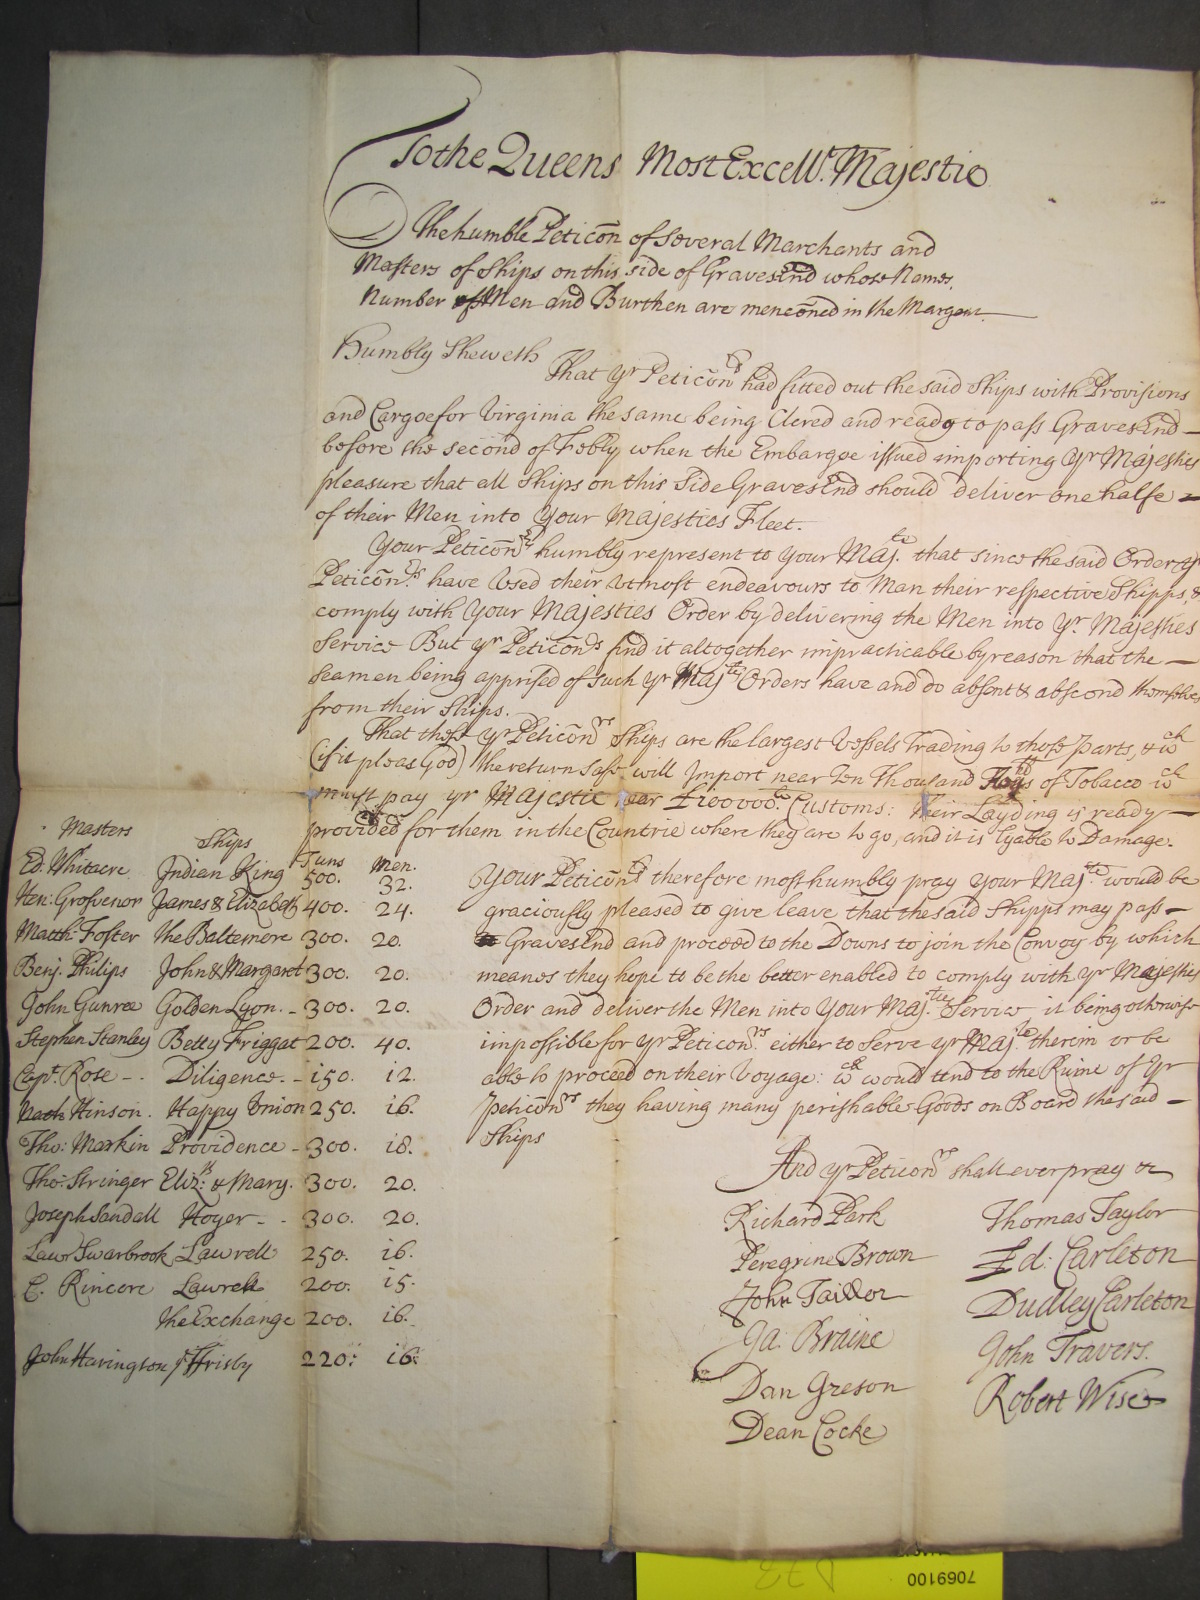 To the Queens Most Excell.t Majestie
The humble Peticōn of Several Marchants and
Masters of Ships on this side of Gravesend whose Names,
Number of Men and Burthen are mencōned in the Margent
Humbly Sheweth
That yr Peticōnrs had fitted out the said Ships with Provisions
and Cargoe for Virginia the same being Clered and ready to pass Gravesend
before the second of Febry when the Embargoe issued importing Yr Majesties
pleasure that all Ships on this Side Gravesend should deliver one halfe
of their Men into Your Majesties Fleet.
Your Peticōnrs humbly represent to your Maj.tie that since the said Order yr
Peticōn.rs have Used their Utmost endeavours to Man their respective Shipps, &
comply with Your Majesties Order by delivering the Men into Yr Majesties
Service But yr Peticōnrs find it altogether impracticable by reason that the
Seamen being apprised of such yr Majties Orders have and do absent & abscond themselves
from their Ships.
That these yr Peticōnrs Ships are the largest Vessels Trading to those parts, & wch
(if it pleas God) the return safe will Import near Ten Thousand Hoggds of Tobacco wch
must pay yr Majestie near £100000 Customs: Their Layding is ready
provided for them in the Countrie where they are to go, and it is lyable to Damage.
Your Peticōnrs therefore most humbly pray your Maj.tie would be
graciously pleased to give leave that the said Shipps may pass
Gravesend and proceed to the Downs to join the Convoy by which
meanes they hope to be the better enabled to comply with yr Majesties
Order and deliver the Men into Your Maj.ties Service it being otherwise
impossible for yr Peticōn.rs either to Serve yr Maj.tie therein or be
able to proceed on their Voyage: wch would tend to the Ruine of Yr
peticōnrs they having many perishable Goods on Board the said
Ships
And yr Peticōnrs shall ever pray &c
Masters Ships Tuns Men.
Ed: Whitacre Indian King 500. 32.
Hen: Grosvenor James & Elizabeth 400. 24.
Matth: Foster the Baltemore 300. 20.
Benj. Philips John & Margaret 300. 20.
John Gunree Golden Lyon. 300. 20.
Stephen Stanley Betty Friggat 200. 40.
Capt. Rose Diligence. 150. 12.
Nath Hinson. Happy Union 250. 16.
Tho: Markin Providence 300. 18.
Tho: Stringer Eliz:th & Mary. 300. 20.
Joseph Sandall Hoyer 300. 20.
Lawr Swarbrook Lawrell 250. 16.
C. Rincore Lawrell 200. 15.
the Exchange 200. 16.
John Harington ye Frisby 220: 16:
Richard Park
Peregrine Brown
John Taillor
Ja: Braine
Dan Greson
Dean Cocke
Thomas Taylor
Ed: Carleton
Dudley Carleton
John Travers.
Robert Wise
7069100